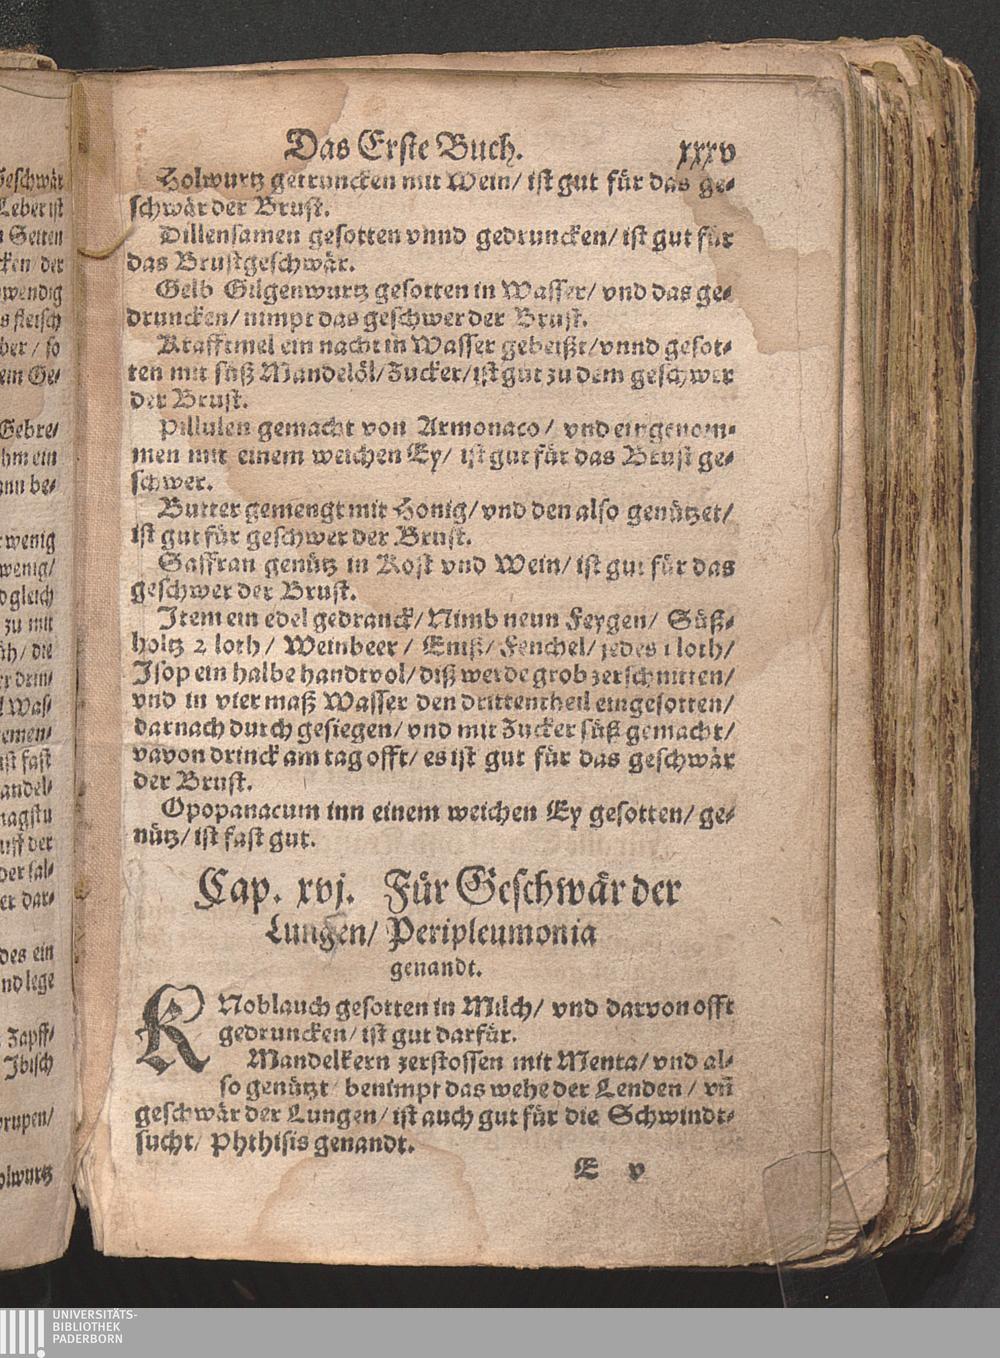 Das Erste Buch. xxxv
Holwurtz getruncken mit Wein/ ist gut für das ge-
schwär der Brust.
Dillensamen gesotten vnnd gedruncken/ ist gut für
das Brustgeschwär.
Gelb Gilgenwurtz gesotten in Wasser/ vnd das ge-
druncken/ nimpt das geschwer der Brust.
Krafftmel ein nacht in Wasser gebeißt/ vnnd gesot-
ten mit süß Mandelöl/ Zucker/ ist gut zu dem geschwer
der Brust.
Pillulen gemacht von Armonaco/ vnd eingenom-
men mit einem weichen Ey/ ist gut für das Brust ge-
schwer.
Butter gemengt mit Honig/ vnd den also genützet/
ist gut für geschwer der Brust.
Saffran genütz in Kost vnd Wein/ ist gut für das
geschwer der Brust.
Item ein edel gedranck/ Nimb neun Feygen/ Süß-
holtz 2 loth/ Weinbeer/ Eniß/ Fenchel/ jedes 1 loth/
Isop ein halbe handtvol/ diß werde grob zerschnitten/
vnd in vier maß Wasser den drittentheil eingesotten/
darnach durch gesiegen/ vnd mit Zucker süß gemacht/
vavon drinck am tag offt/ es ist gut für das geschwär
der Brust.
Opopanacum inn einem weichen Ey gesotten/ ge-
nütz/ ist fast gut.
Cap. xvj. Für Geschwär der
Lungen/ Peripleumonia
genandt.
KNoblauch gesotten in Milch/ vnd darvon offt
gedruncken/ ist gut darfür.
Mandelkern zerstossen mit Menta/ vnd al-
so genützt/ benimpt das wehe der Lenden/ vñ
geschwär der Lungen/ ist auch gut für die Schwindt-
sucht/ Phthisis genandt.
E v
UNIVERSITÄTS-
BIBLIOTHEK
PADERBORN